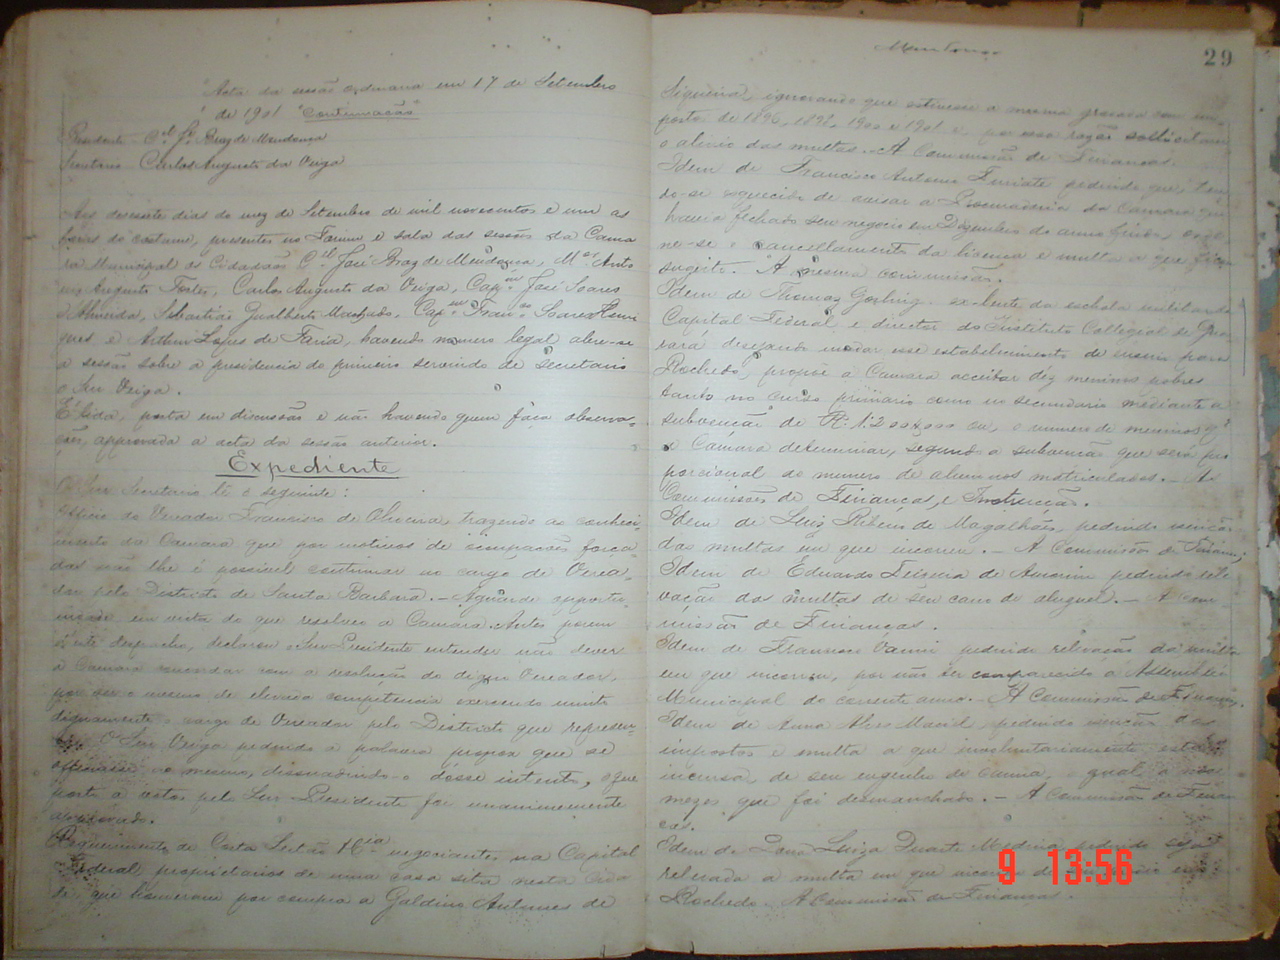 Acta da sessão ordinaria em 17 de Setembro
de 1901 "Continuação"
Presidente Cel. Je. Braz de Mendonça
Secretario Carlos Augusto da Veiga
Aos desesete dias do mez de Setembro de mil novecentos e um as
horas do costume, presentes no Forum e sala das sessões da Cama
ra Municipal os Cidadãos Cel. José Braz de Mendonça, Mel. Anto
nio Augusto Fortes, Carlos Augusto da Veiga, Capm. José Soares
d'Almeida, Sebastião Gualberto Machado, Capm. Franco. Soares Henri
ques e Arthur Lopes de Faria, havendo numero legal abre-se
a sessão sobre a presidencia do primeiro servindo de secretario
o Snr Veiga.
É lida, posta em discussão e não havendo quem faça observa-
ções, approvada a acta da sessão anterior.
Expediente
O Snr Secretario lê o seguinte:
Officio do Vereador Francisco de Oliveira, trazendo ao conheci-
mento da Camara que por motivos de occupações força-
das não lhe é possivel continuar no cargo de Verea-
dor pelo Districto de Santa Barbara. - Aguarde opportu-
em vista do que resolveu a Camara. Antes porem
d'este despacho, declarou o Snr Presidente entender não dever
a Camara concordar com a resolução do digno Vereador,
por ser o mesmo de elevada competencia exercendo muito
dignamente o cargo de Vereador pelo Districto que represen-
ta. O Snr Veiga pedindo a palavra propoz que se
officiasse ao mesmo, dissuadindo-o d'esse intento, o que
posto a votos pelo Snr Presidente foi unanimemente
approvado.
Requerimento de Costa Leitão & Cia negociantes na Capital
Federal proprietarios de uma casa sita nesta Cida
de, que houveram por compra a Galdino Antunes de
29
Siqueira, ignorando que estivesse a mesma gravada com im-
postos de 1896, 1898, 1900 e 1901 e por essa razão sollicitam
o alivio das multas. - A Commissão de Finanças.
Idem de Francisco Antonio pedindo que, ten
do-se esquecido de avisar a Procuradoria da Camara que
havia fechado seu negocio em Dezembro do anno findo,
o cancellamento da licença e multa a que
sugeito. - A mesma commissão.
Idem de Thomaz ex-lente da eschola militar da
Capital Federal, e director do Instituto Collegial de
desejando mudar esse estabelecimento de ensino para
Rochedo, propõe a Camara acceitar dez meninos pobres
tanto no curso primario como no secundario mediante a
subvenção de Rs. 1:200$000 ou, o numero de meninos qe
a Camara determinar, segundo a subvenção que será pro
porcional ao numero de alumnos matriculados. - As
Commissões de Finanças, e Instrucção.
Idem de Luiz Ribeiro de Magalhães, pedindo isenção
das multas em que incorreu. - A Commissão de Finanças
Idem de Eduardo Teixeira de Amorim pedindo rele
vação das multas de seu carro de aluguel. - A com-
missão de Finanças.
Idem de Francisco Vanni pedindo relevação da multa
em que incorreu, por não ter comparecido a Assembléa
Municipal do corrente anno. - A Commissão de Finanças.
Idem de Anna Alves Maciel, pedindo isenção dos
impostos e multa a que involuntariamente está
incursa, de seu engenho de canna, o qual a nove
mezes que foi desmanchado. - A Commissão de Finan
ças.
Idem de Dona Luiza Duarte Medina pedindo seja
relevada a multa em que incorreu de
Rochedo. - A Commissão de Finanças.
9 13:56